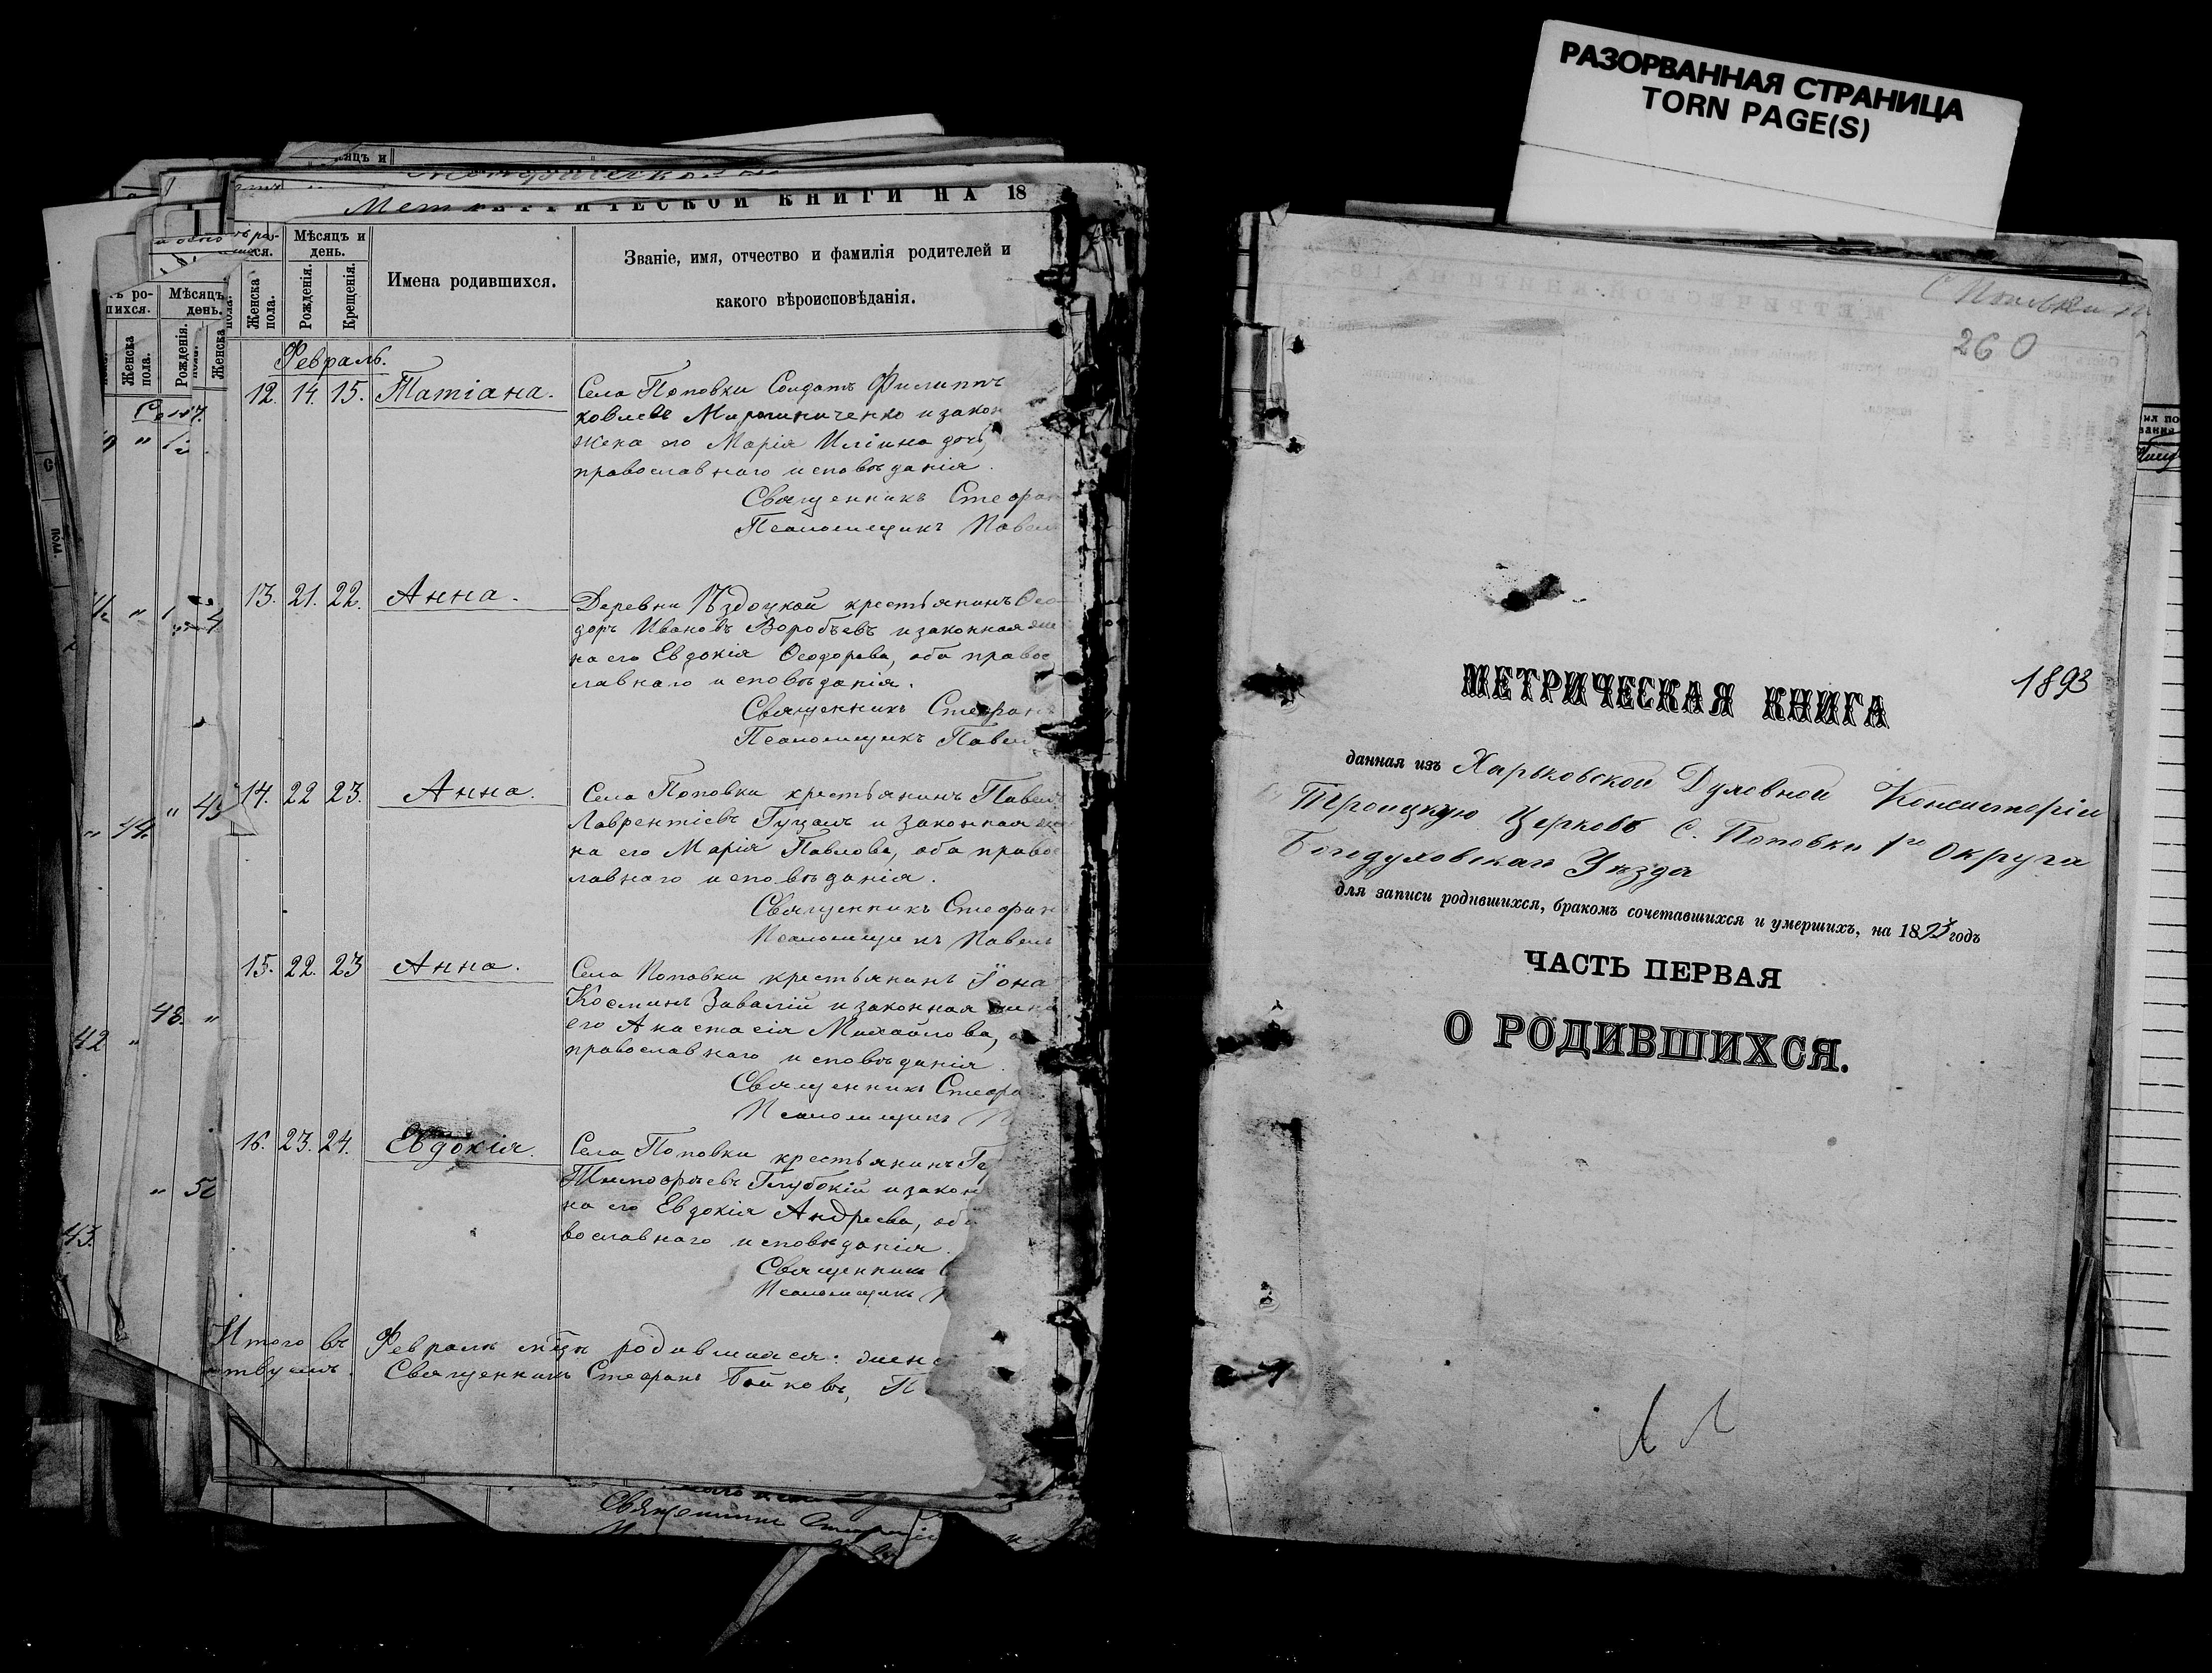 РАЗОРВАННАЯ СТРАНИЦА
TORN PAGE(S)
МЕТРИЧЕСКОЙ КНИГИ НА 18
Мѣсяцъ и день.
Женска пола.
Рожденія.
Крещенія.
Имена родившихся.
Званіе, имя, отчество и фамилія родителей и
какого вѣроисповѣданія.
Февраль.
12. 14. 15. Татіана.
Села Поповки Солдатъ Филиппъ
ковлевъ Мирошниченко и закон
жена его Марія Иліина
православнаго исповѣданія.
Священникъ Стефан
Псаломщикъ Павел
13. 21. 22. Анна.
Деревни крестьянинъ Ѳео
доръ Ивановъ Воробьевъ и законная же
на его Евдокія Ѳеодорова, оба правос
лавнаго исповѣданія.
Священникъ Стефанъ
Псаломщикъ Павел
14. 22 23. Анна.
Села Поповки крестьянинъ Павел
Лаврентіевъ и законная же
на его Марія Павлова, оба правос
лавнаго исповѣданія.
Священникъ Стефан
Псаломщикъ Павелъ
15. 22. 23 Анна.
Села Поповки крестьянинъ Іона
Косминъ Завалій и законная жена
его Анастасія Михайлова, о
православнаго исповѣданія.
Священникъ Стефа
Псаломщикъ П
16. 23. 24. Евдокія.
Села Поповки крестьянинъ
Тимофѣевъ Глубокій и закон
на его Евдокія Андреева, оба
вославнаго исповѣданія.
Священникъ С
Псаломщикъ
Итого въ Февралѣ м-цѣ родившихся: женс
Священникъ Стефанъ Бойковъ, П
С. Поповки
260
МЕТРИЧЕСКАЯ КНИГА
1893
данная изъ Харьковской Духовной Консисторіи
Троицкую Церковь с. Поповки 1го Округа
Богодуховскаго Уѣзда
для записи родившихся, бракомъ сочетавшихся и умершихъ, на 1893 годъ
ЧАСТЬ ПЕРВАЯ
О РОДИВШИХСЯ.